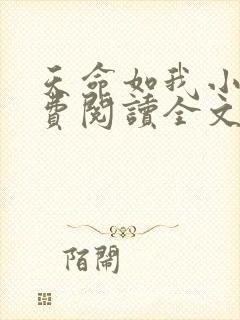 天命如我小
費閱讀全文
陌鬧